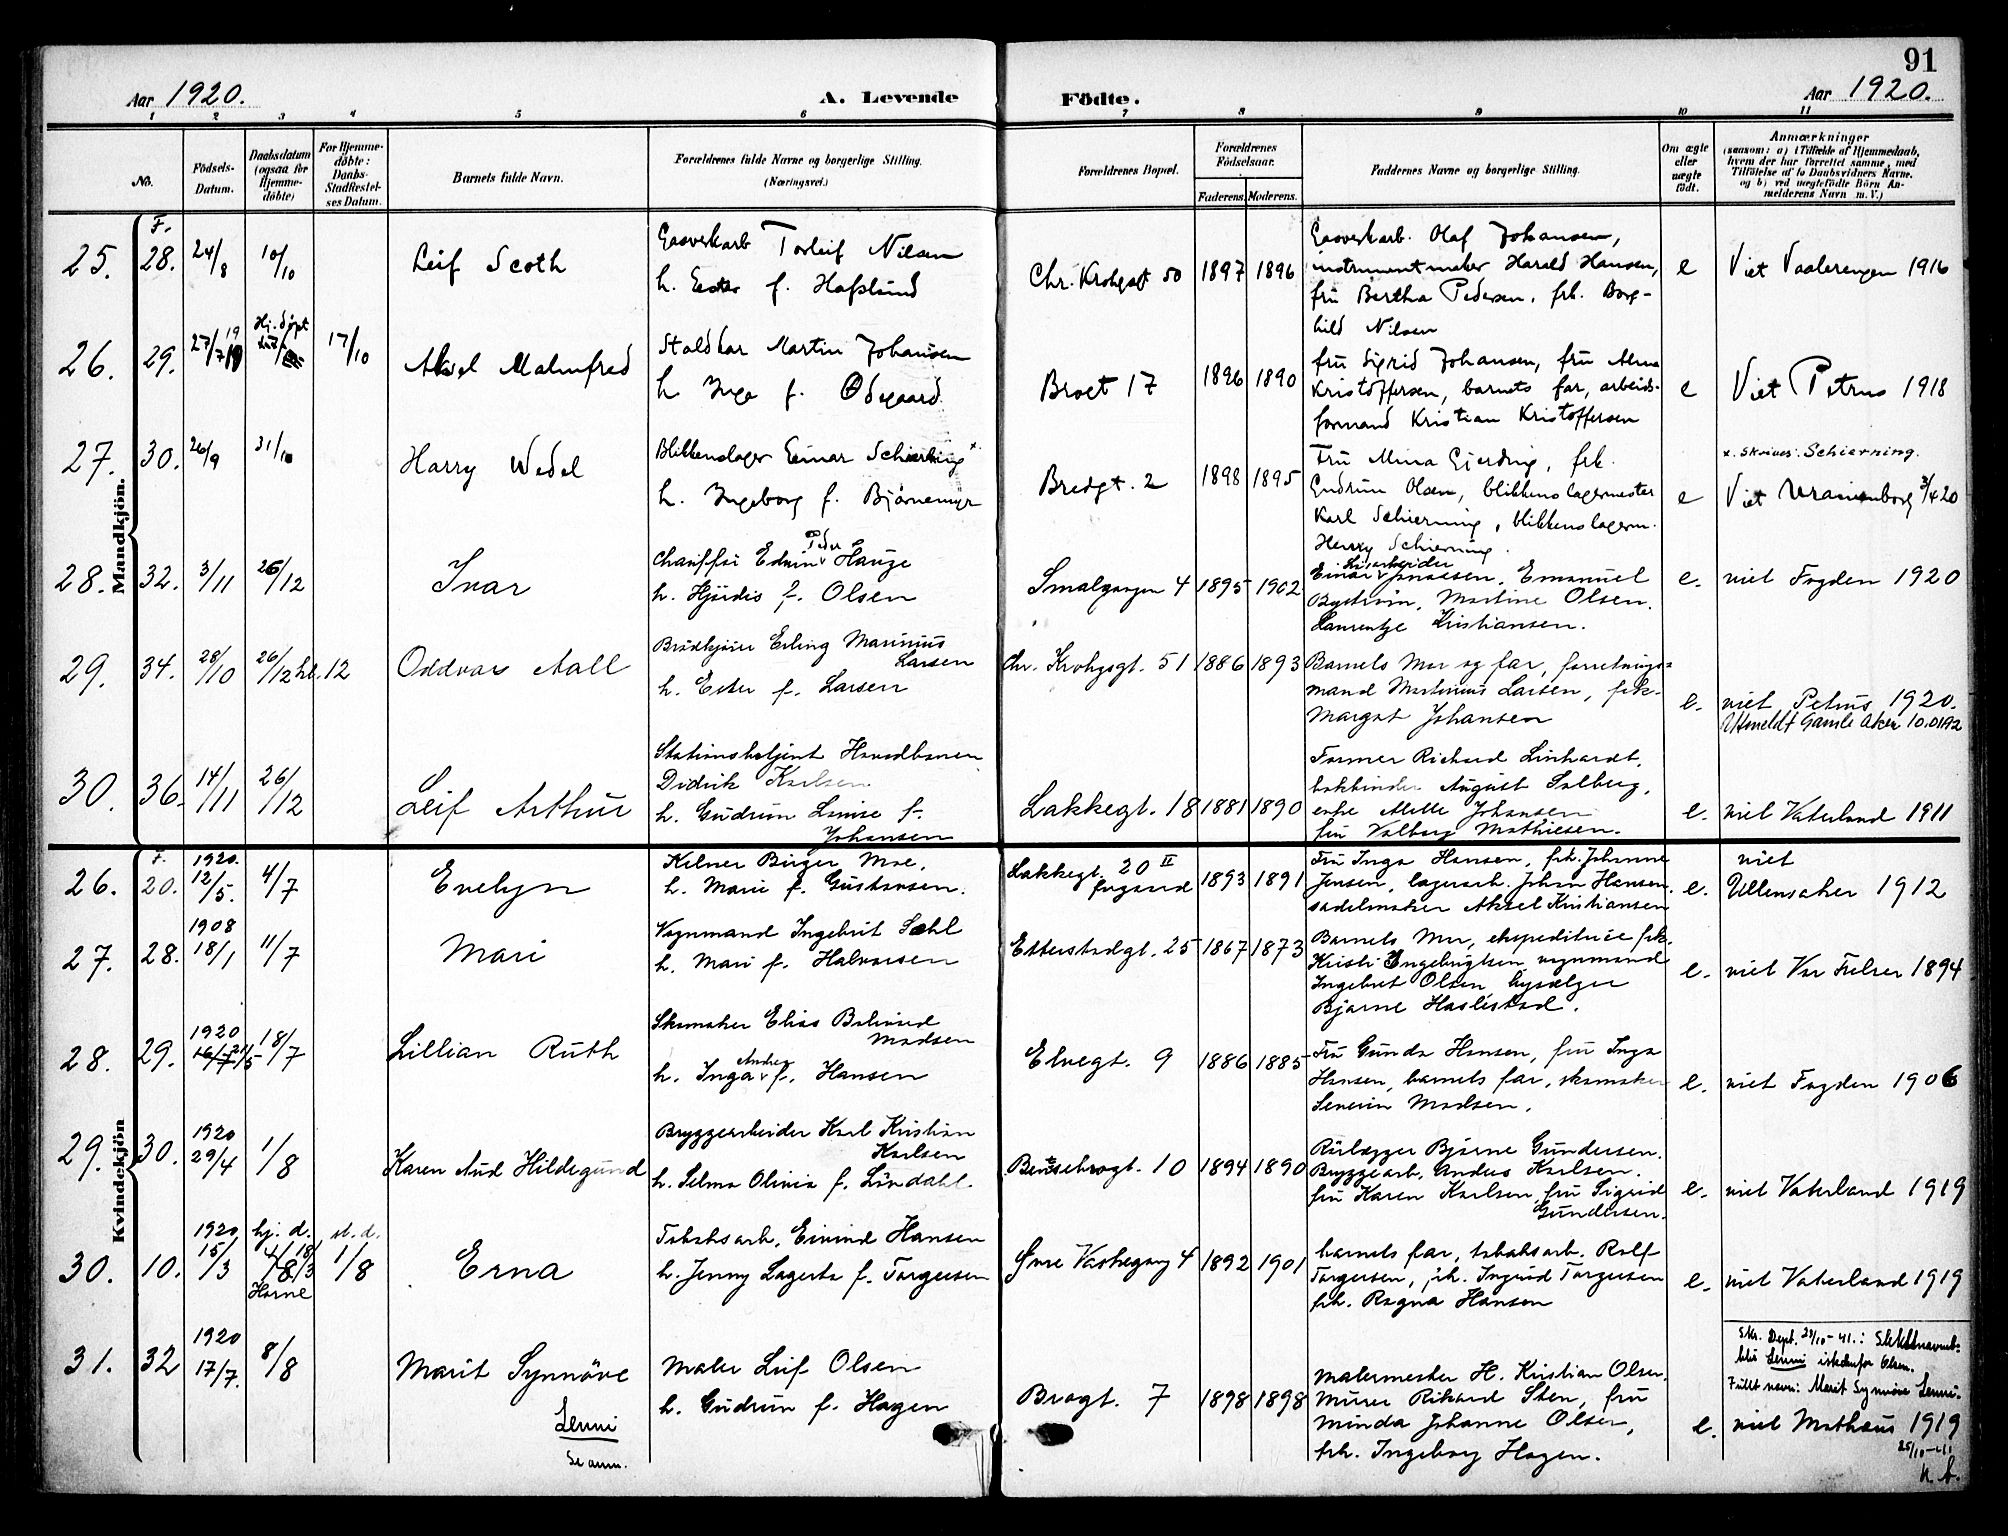 91
Aar 1920.
A. Levende Födte.
Aar 1920.
1 2 3 4 5 6 7 8 9 10 11
No.
Födsels-
Datum.
Daabsdatum
(ogsaa for
Hjemme-
døbte)
For Hjemme-
døbte:
Daabs-
Stadfæstel-
ses Datum.
Barnets fulde Navn.
Forældrenes fulde Navne og borgerlige Stilling.
(Næringsvei.)
Forældrenes Bopæl.
Forældrenes
Födselsaar.
Faderens. Moderens.
Faddernes Navne og borgerlige Stilling.
Om ægte
eller
uægte
födt.
Anmærkninger
(saasom: a) i Tilfælde af Hjemmedaab,
hvem der har forrettet samme, med
Tilföielse af to Daabsvidners Navne.
og b) ved uegtefödte Börn An-
melderens Navn m. V.)
Mandkjön.
F.
25. 28. 24/8 10/10
Leif Scoth
Gasverkarb Torleif Nilsen
h. Ester f. Hafslund
Chr. Krohgsgt 50
1897 1896
Gasverkarb. Olaf Johansen,
instrumentmaker Harald Hansen,
fru Bertha Pedersen, frk. Borg-
hild Nilsen
e
Viet Vaalerengen 1916
26. 29. 27/7 19
Hj. døpt
17/10
Aksel Malmfred
Staldkar Martin Johansen
h Inga f. Ødegaard
Brogt 17
1896 1890
fru Sigrid Johansen, fru Alma
Kristoffersen, barnets far, arbeids-
formand Kristian Kristoffersen
e
Viet Petrus 1918
27. 30. 26/9 31/10
Harry Wedel
Blikkenslager Einar Schierling x
h. Ingeborg f. Bjørnemyr
Bredgt. 2
1898 1895
Fru Mina Gjerding, frk.
Gudrun Olsen, blikkenslagermester
Karl Schierning, blikkenslagerm.
Henry Schierning.
e
x. skrives: Schierning.
Viet Uranienborg 3/4 20
28. 32. 3/11 26/12
Ivar
Peder
Chauffør Edvin v Hauge
h. Hjördis f. Olsen
Smalgangen 4
1895 1902
Einar Jonassen. Emanuel
Byström, Martine Olsen.
Laurentze Kristiansen.
e.
viet Fagden 1920
29. 34. 28/10 26/12 hb. 12
Oddvar Aall
Brödkjører Erling Marinius
Larsen
h. Ester f. Larsen
Chr. Krohgsgt. 51
1886 1893
Barnets Mor og far, forretnings=
mand Martinius Larsen, frk.
Margot Johansen
e.
viet Petrus 1920.
Utmeldt Gamle Aker
30. 36. 14/11 26/12
Leif Arthur
Stationsbetjent Hovedbanen
Didrik Karlsen.
h. Gudrun Louise f.
Johansen
Lakkegt. 18
1881 1890
Former Richard Linhardt,
bokbinder August Solberg,
enke Alette Johansen
fru Valborg Mathiesen.
e.
viet Vaterland 1911
Kvindekjön
F.
26. 20.
1920.
12/5. 4/7
Evelyn
Kelner Birger Moe,
h. Marie f. Gustavsen.
Lakkegt. 20 II
1893 1891
Fru Inga Hansen, frk. Johanne
Jensen, lagerarb. Johan Hansen.
sadelmaker Aksel Kristiansen
e.
viet
Ullensaker 1912
27. 28.
1908
18/1 11/7
Mari
Vognmand Ingebrit Sæhl
h. Mari f. Halvorsen
Etterstadgt. 25
1867 1873
Barnets Mor, ekspeditrice frk.
Kristi Engebrigtsen vognmand
Ingebret Olsen, bysælger
Bjarne Haslestad.
e.
viet Vor Frelser 1894
28. 29.
1920
21/5 18/7
Lillian Ruth
Skomaker Elias
Madsen
Andrea
h. Inga v f. Hansen
Elvegt. 9
1886 1885
Fru Gunda Hansen, fru Inga
Hansen, barnets far, skomaker
Severin Madsen.
e.
viet Fagden 1906
29. 30.
1920
29/4 1/8
Karen Aud Hildegund
Bryggearbeider Karl Kristian
Karlsen
h. Selma Olivia f. Lövdahl.
Bentsebrogt. 10
1894 1890
Rörlægger Bjarne Gundersen.
Bryggearb. Anders Karlsen.
fru Karen Karlsen, fru Sigrid
Gundersen.
e.
viet Vaterland 1919
30. 10.
1920
15/3
hj. d.
18/3
st. d.
1/8
Erna
Tobaksarb. Eivind Hansen
h. Jenny Lagerta f. Torgersen
Øvre Vaskegang 4
1892 1901
barnets far, tobaksarb. Rolf
Torgersen, frk. Ingrid Torgersen
frk. Ragna Hansen
e.
viet Vaterland 1919
31. 32
1920
17/7. 8/8
Marit Synnöve
Lenni
Maler Leif Olsen
h. Gudrun f. Hagen
Brogt. 7
1898 1898
Malermester H. Kristian Olsen.
Murer Rikard Sten, fru
Minda Johanne Olsen,
frk. Ingeborg Hagen.
e.
Skr. Dept. 23/10-41.: Slektsnavnet
blir Lenni istedenfor Olsen.
Fullt navn: Marit Synnöve Lenni.
viet Mathæus 1919
25/10-41